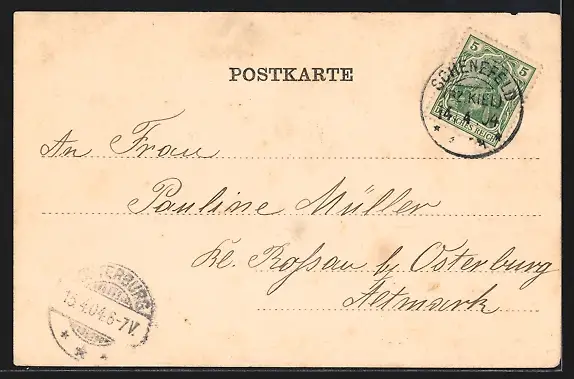 POSTKARTE
5 5
DEUTSCHES REICH
SCHENEFELD
(BZ. KIEL)
14.4.04
An Frau
Pauline Müller
Kl. Rossau b/ Osterburg
Altmark
OSTERBURG
15.4.04.6-7V.